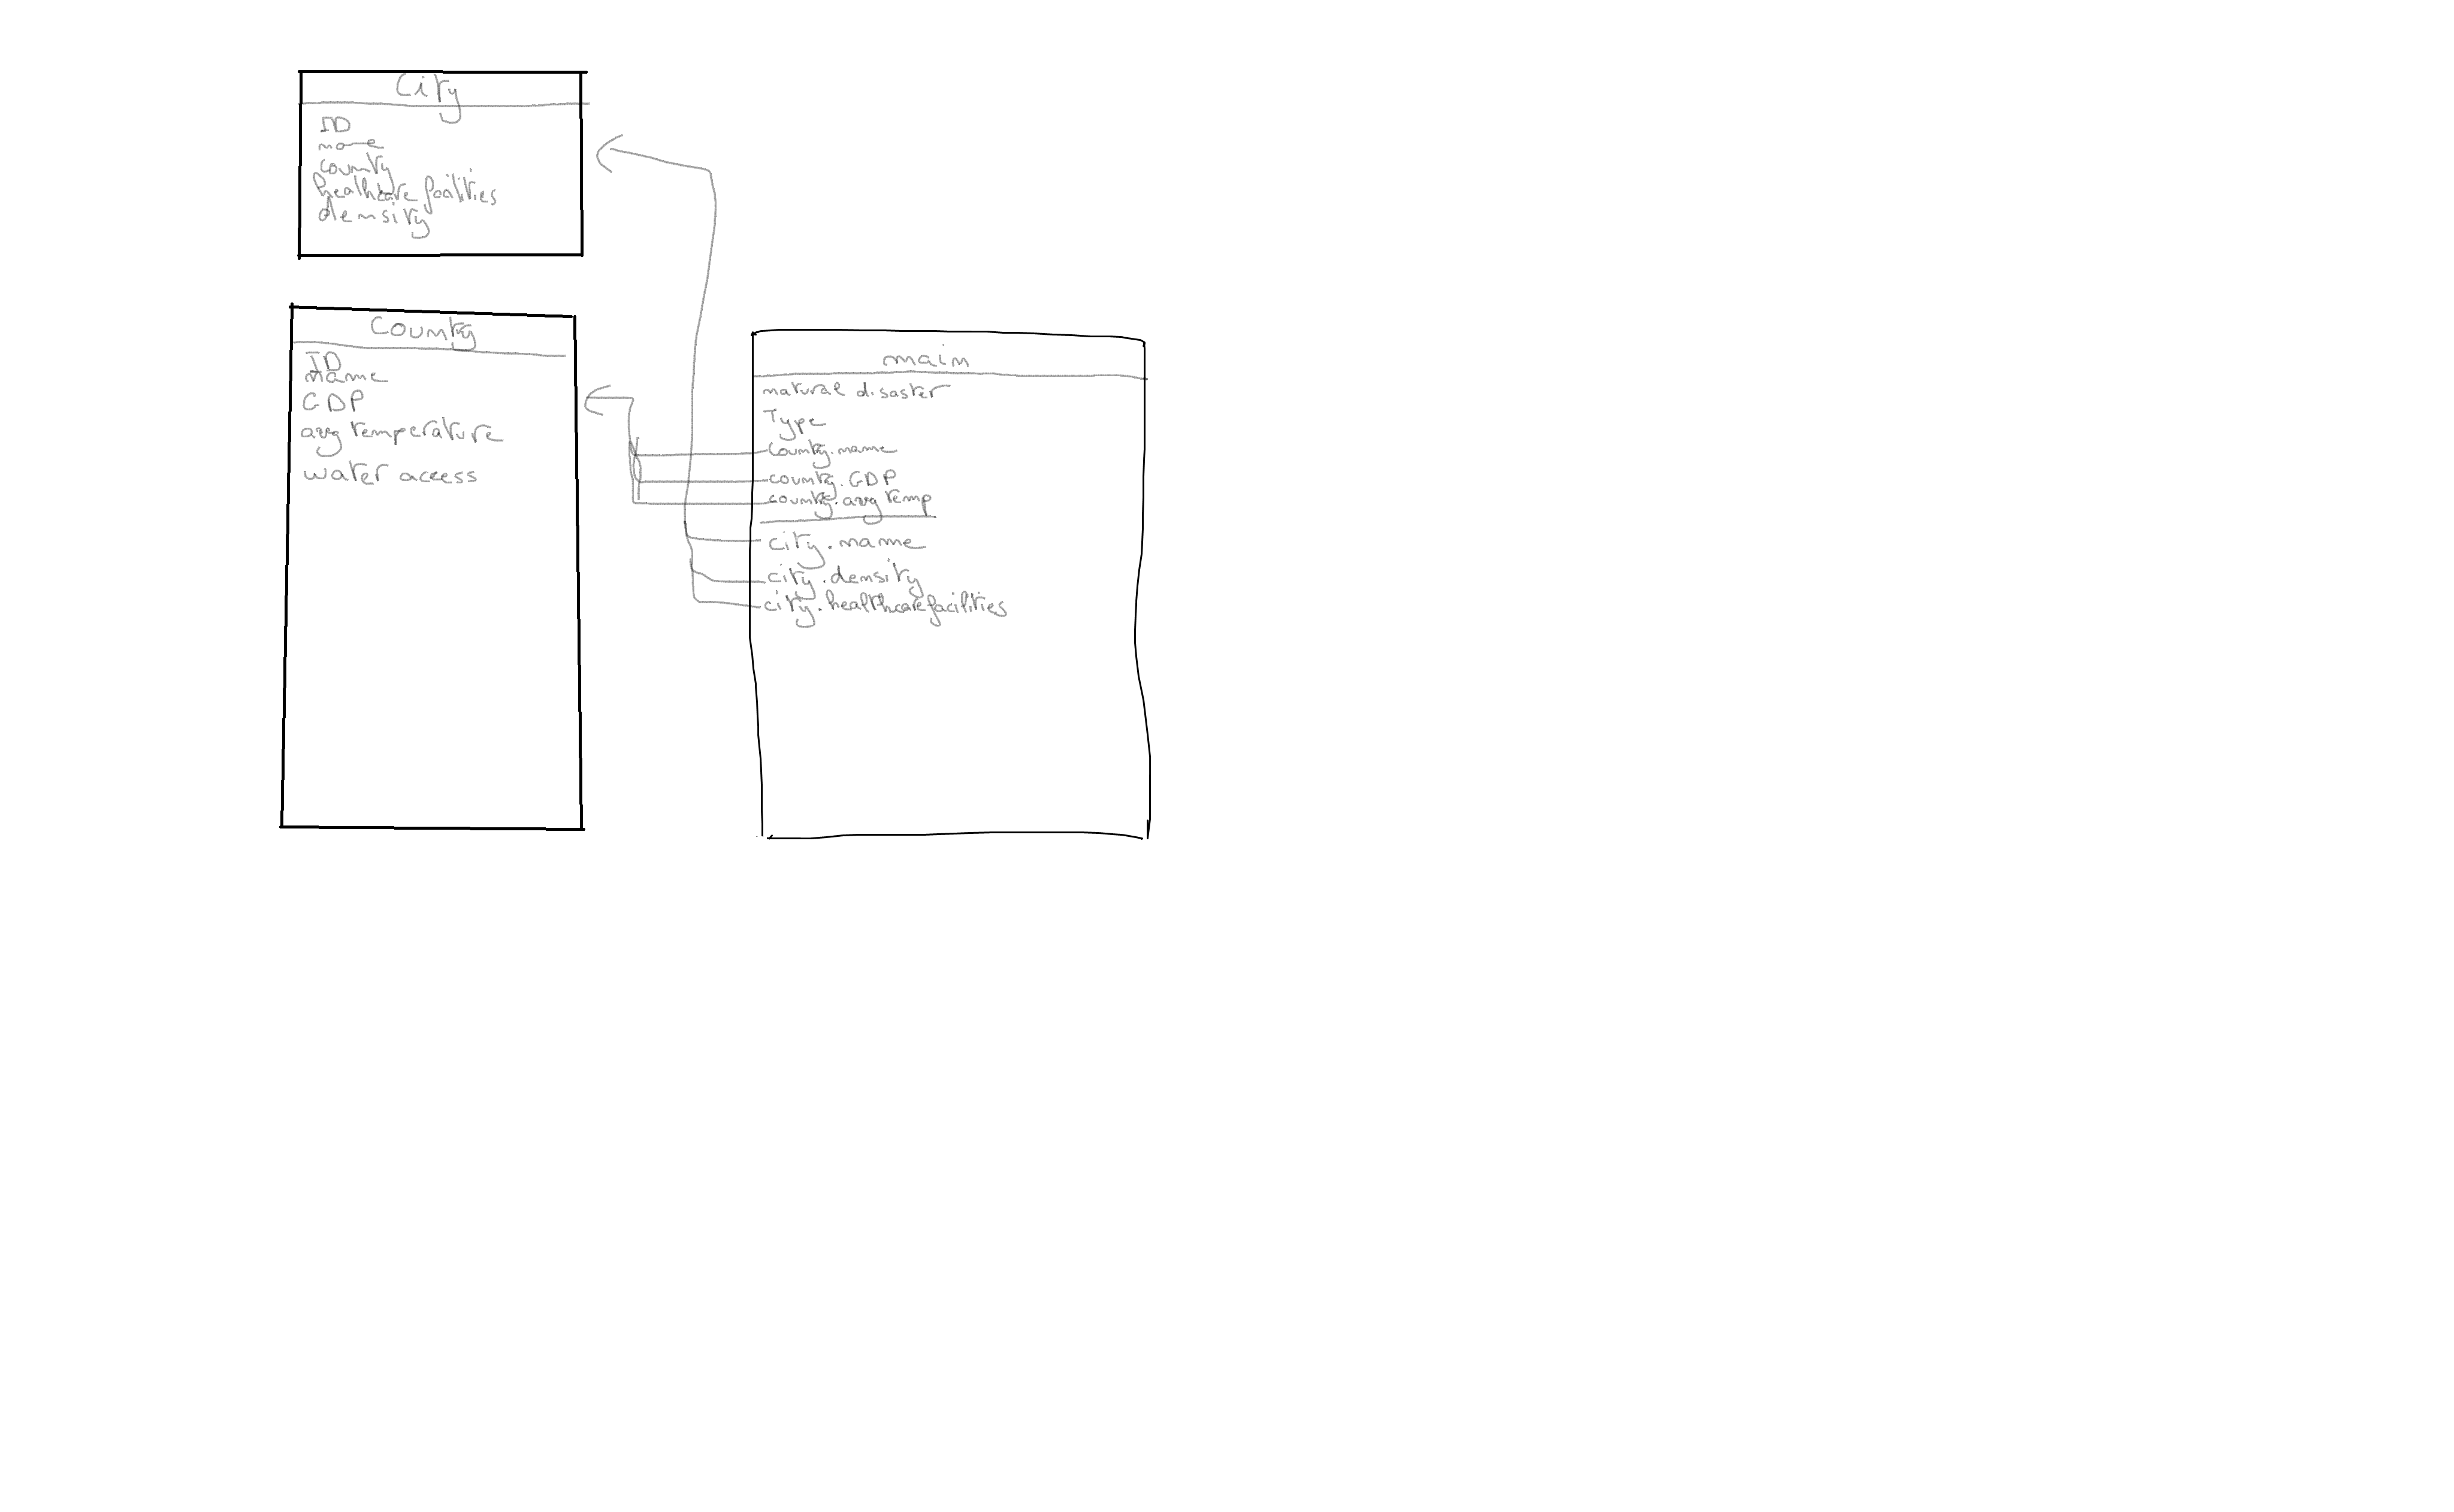 City
ID
name
country
healthcare facilities
density
Country
ID
name
GDP
avg temperature
water access
main
natural disaster
Type
country.name
country.GDP
country.avg temp
city.name
city.density
city.healthcarefacilities